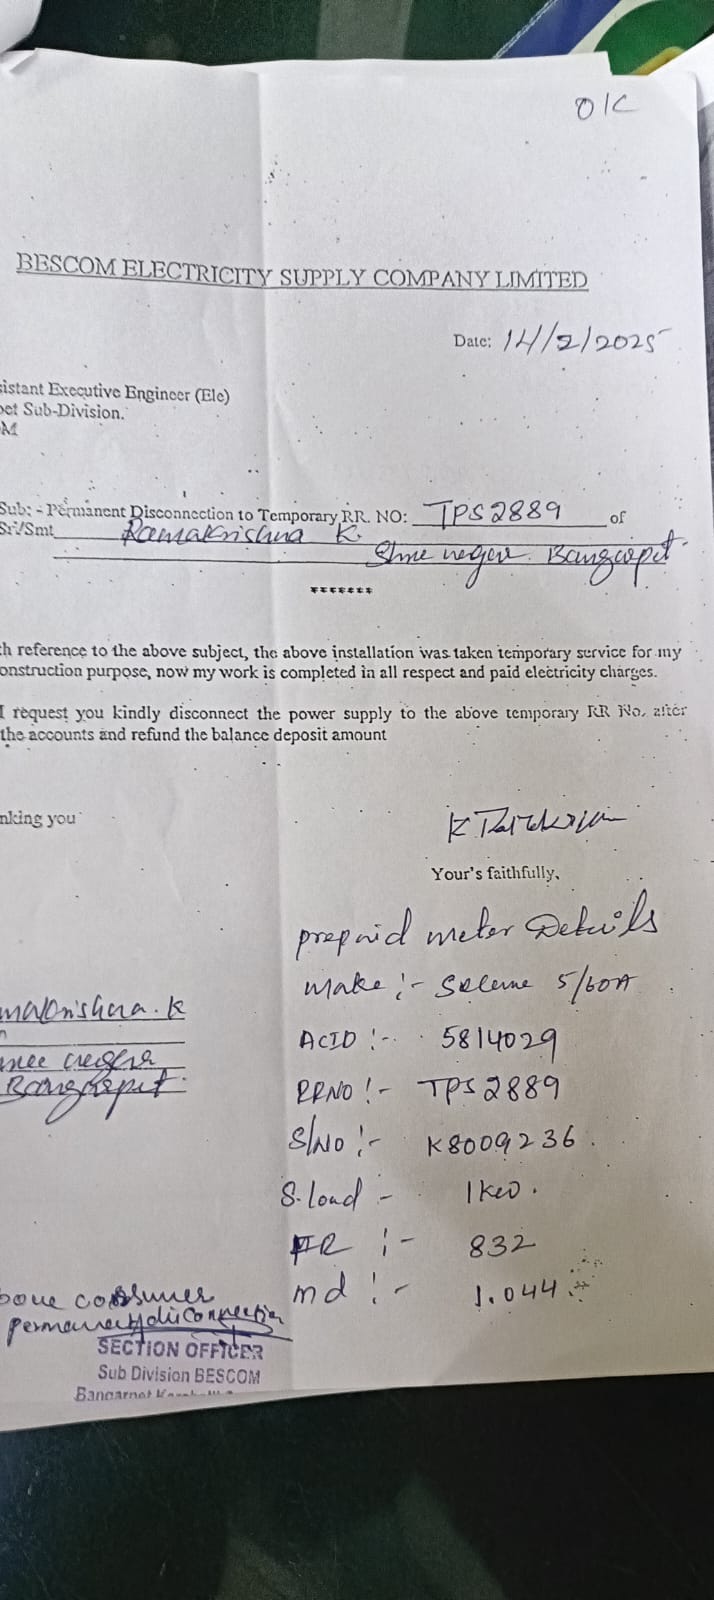 O/C
BESCOM ELECTRICITY SUPPLY COMPANY LIMITED
Date: 14/2/2025
sistant Executive Engineer (Ele)
pet Sub-Division.
M
Sub: - Permanent Disconnection to Temporary RR. NO: TPS2889 of
Sri/Smt Ramakrishna K.
Bangarpet
*******
th reference to the above subject, the above installation was taken temporary service for my
onstruction purpose, now my work is completed in all respect and paid electricity charges.
I request you kindly disconnect the power supply to the above temporary RR No, after
the accounts and refund the balance deposit amount
nking you
Your's faithfully,
prepaid meter Details
make :- 5/60A
makrishna. K
ACID :- 5814029
Bangarpet.
RRNO :- TPS2889
S/NO :- K8009236.
S.load - 1kw.
FR :- 832
md :- 1.044
bove consumer
permanent disconnection
SECTION OFFICER
Sub Division BESCOM